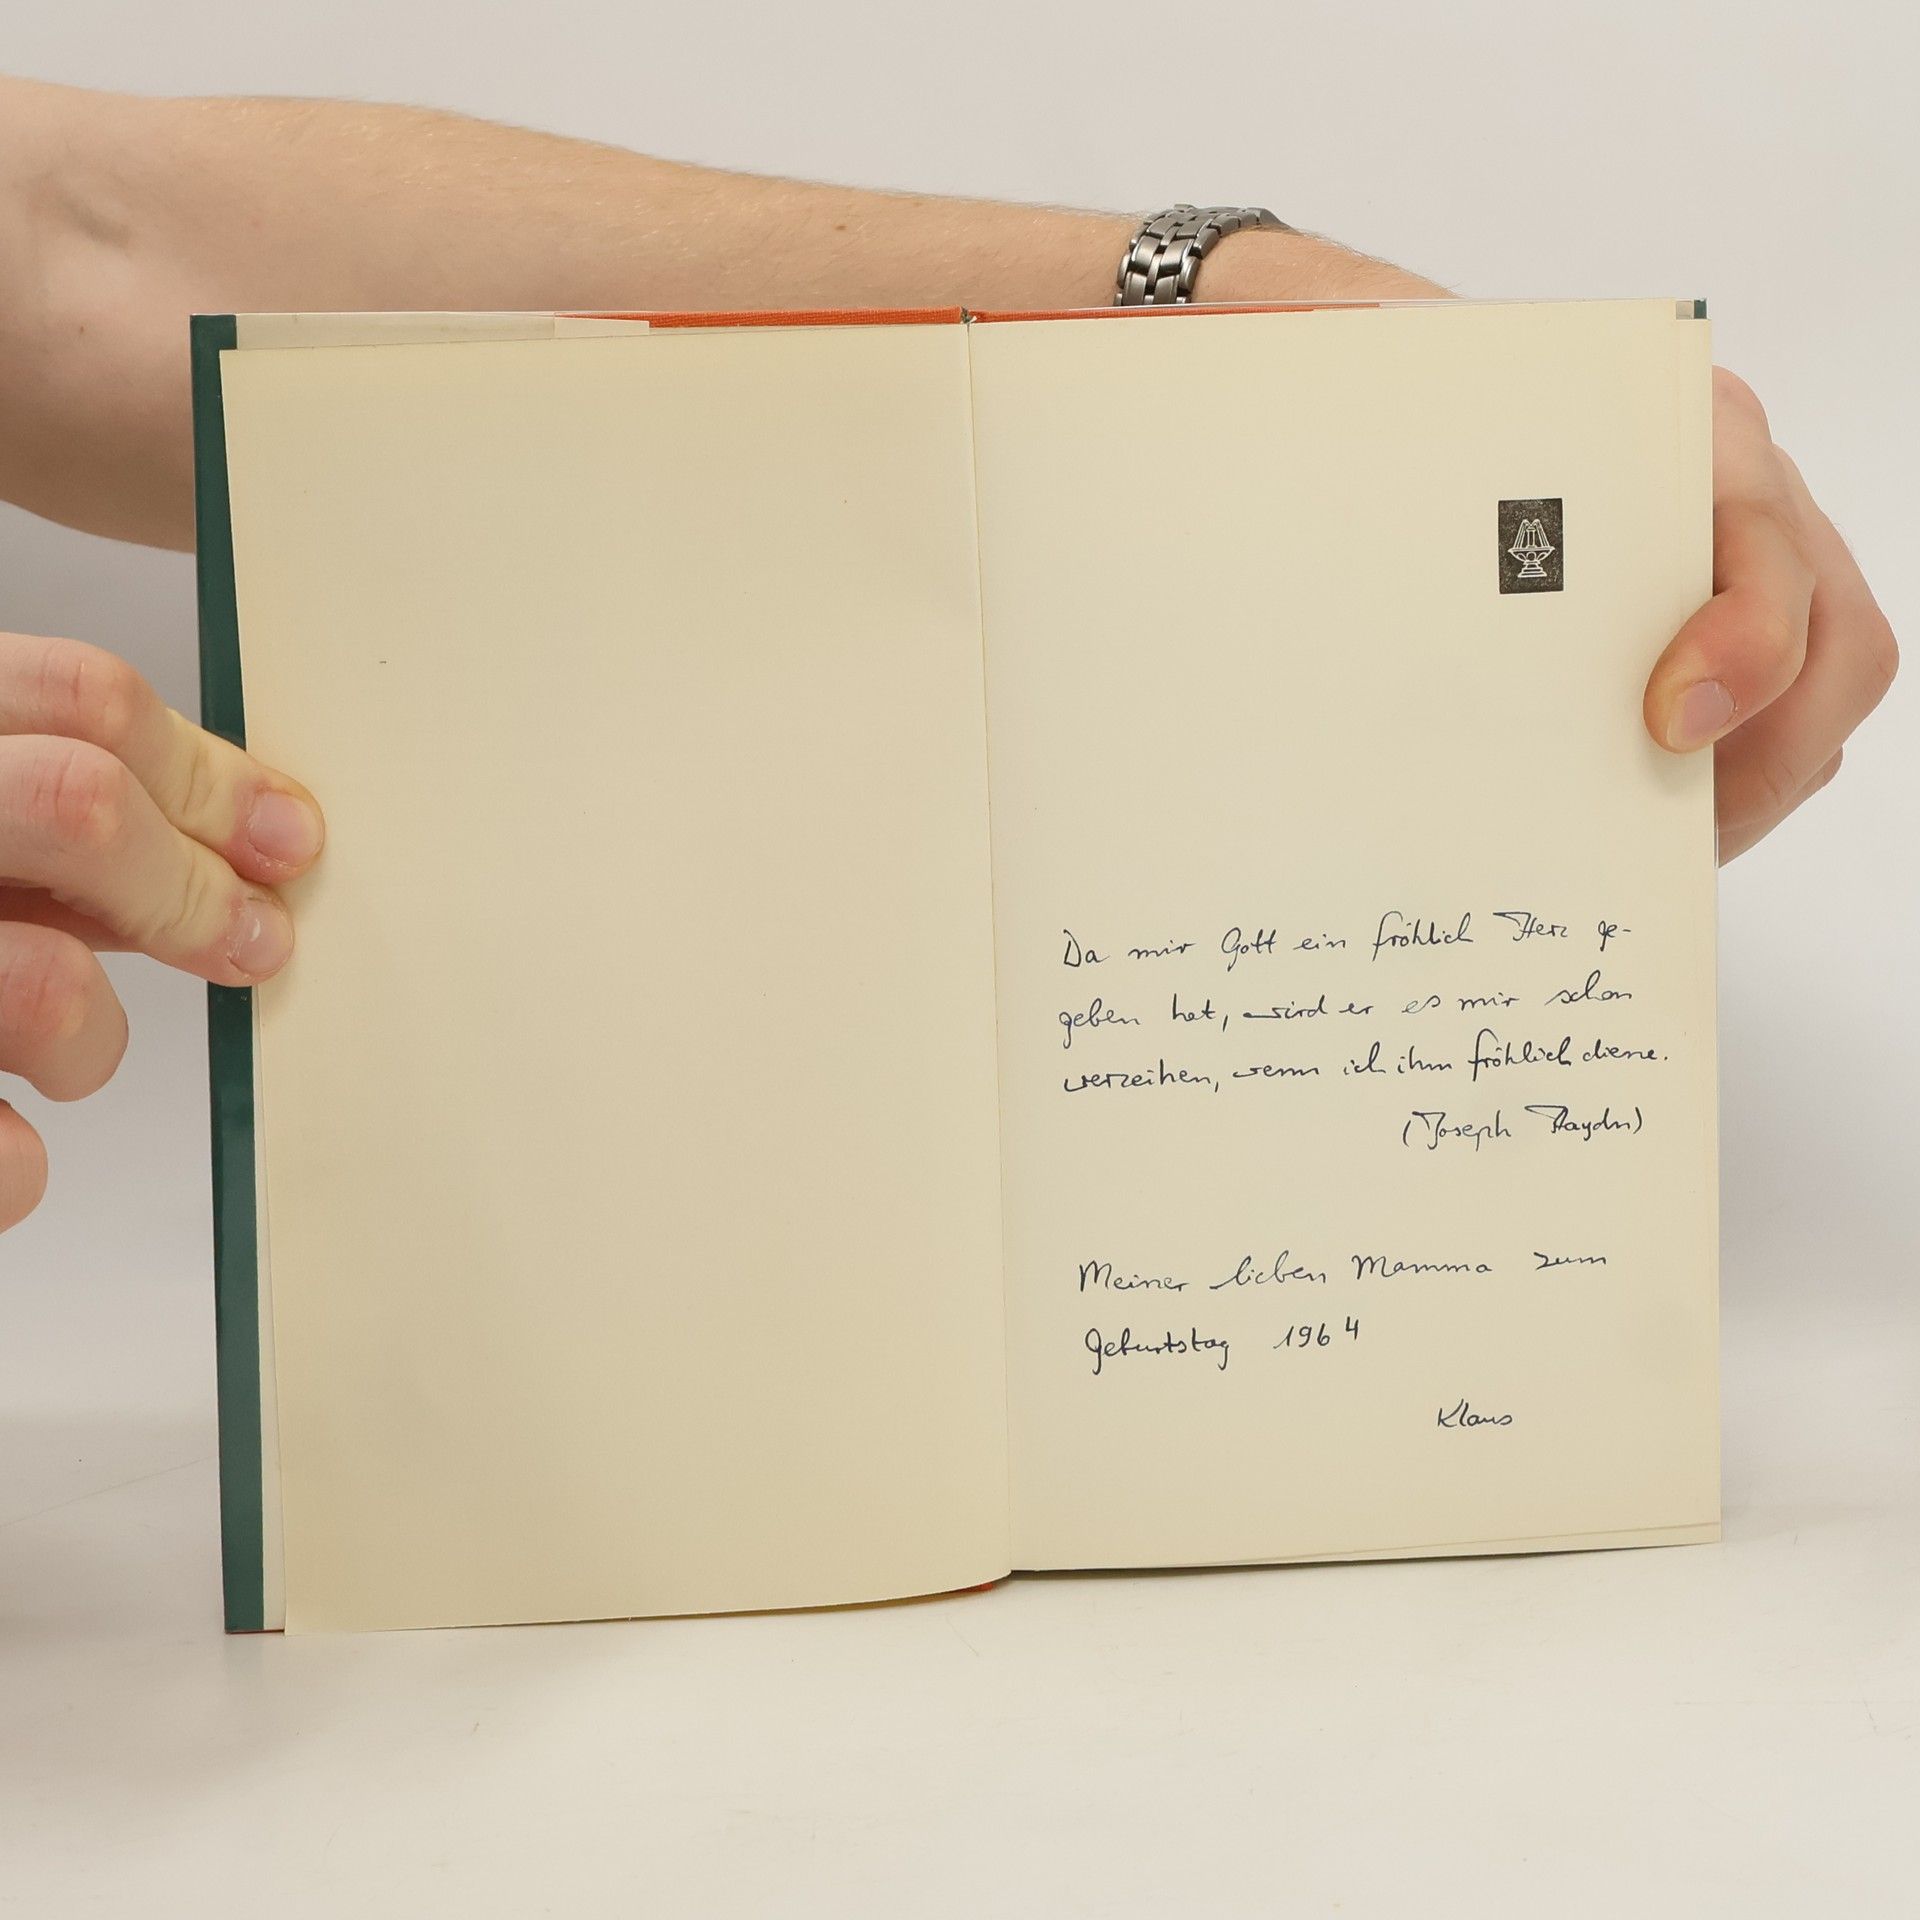 Da mir Gott ein fröhlich Herz ge-
geben hat, wird er es mir schon
verzeihen, wenn ich ihm fröhlich diene.
(Joseph Haydn)
Meiner lieben Mamma zum
Geburtstag 1964
Klaus